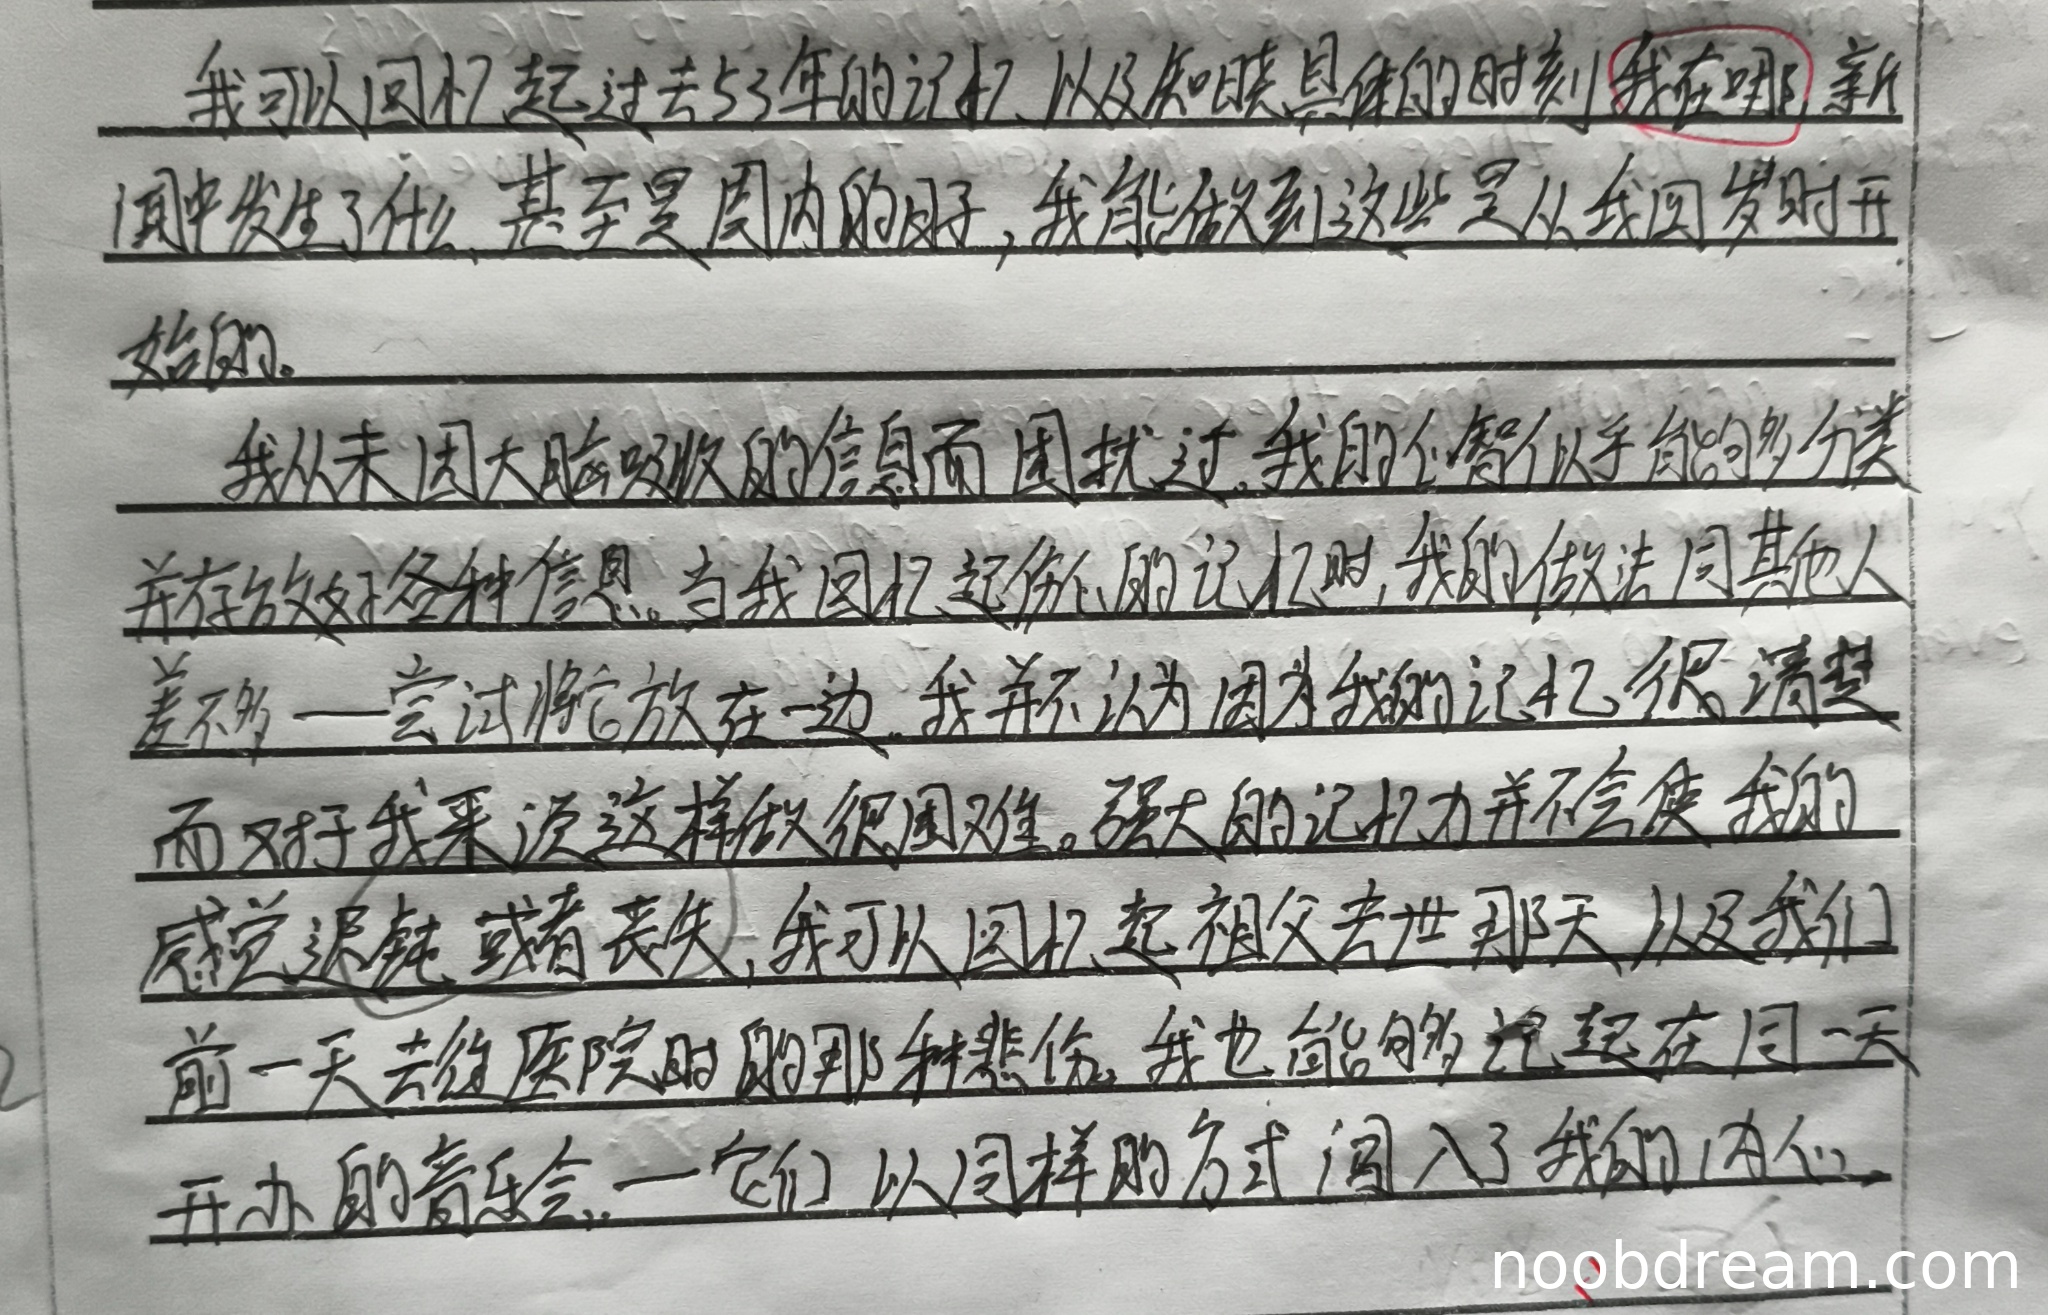 我可以回忆起过去53年的记忆以及知晓具体的时刻我在哪新
闻中发生了什么,甚至是周内的日子,我能做到这些是从我四岁时开
始的。
我从未因大脑吸收的信息而困扰过。我的心智似乎能够分类
并存放好各种信息。当我回忆起伤心的记忆时,我的做法同其他人
差不多——尝试将它放在一边。我并不认为因为我的记忆很清楚
而对于我来说这样做很困难。强大的记忆力并不会使我的
感觉迟钝或者丧失,我可以回忆起祖父去世那天以及我们
前一天去往医院时的那种悲伤。我也能够记起在同一天
开办的音乐会。—它们以同样的方式闯入了我的内心。
noobdream.com